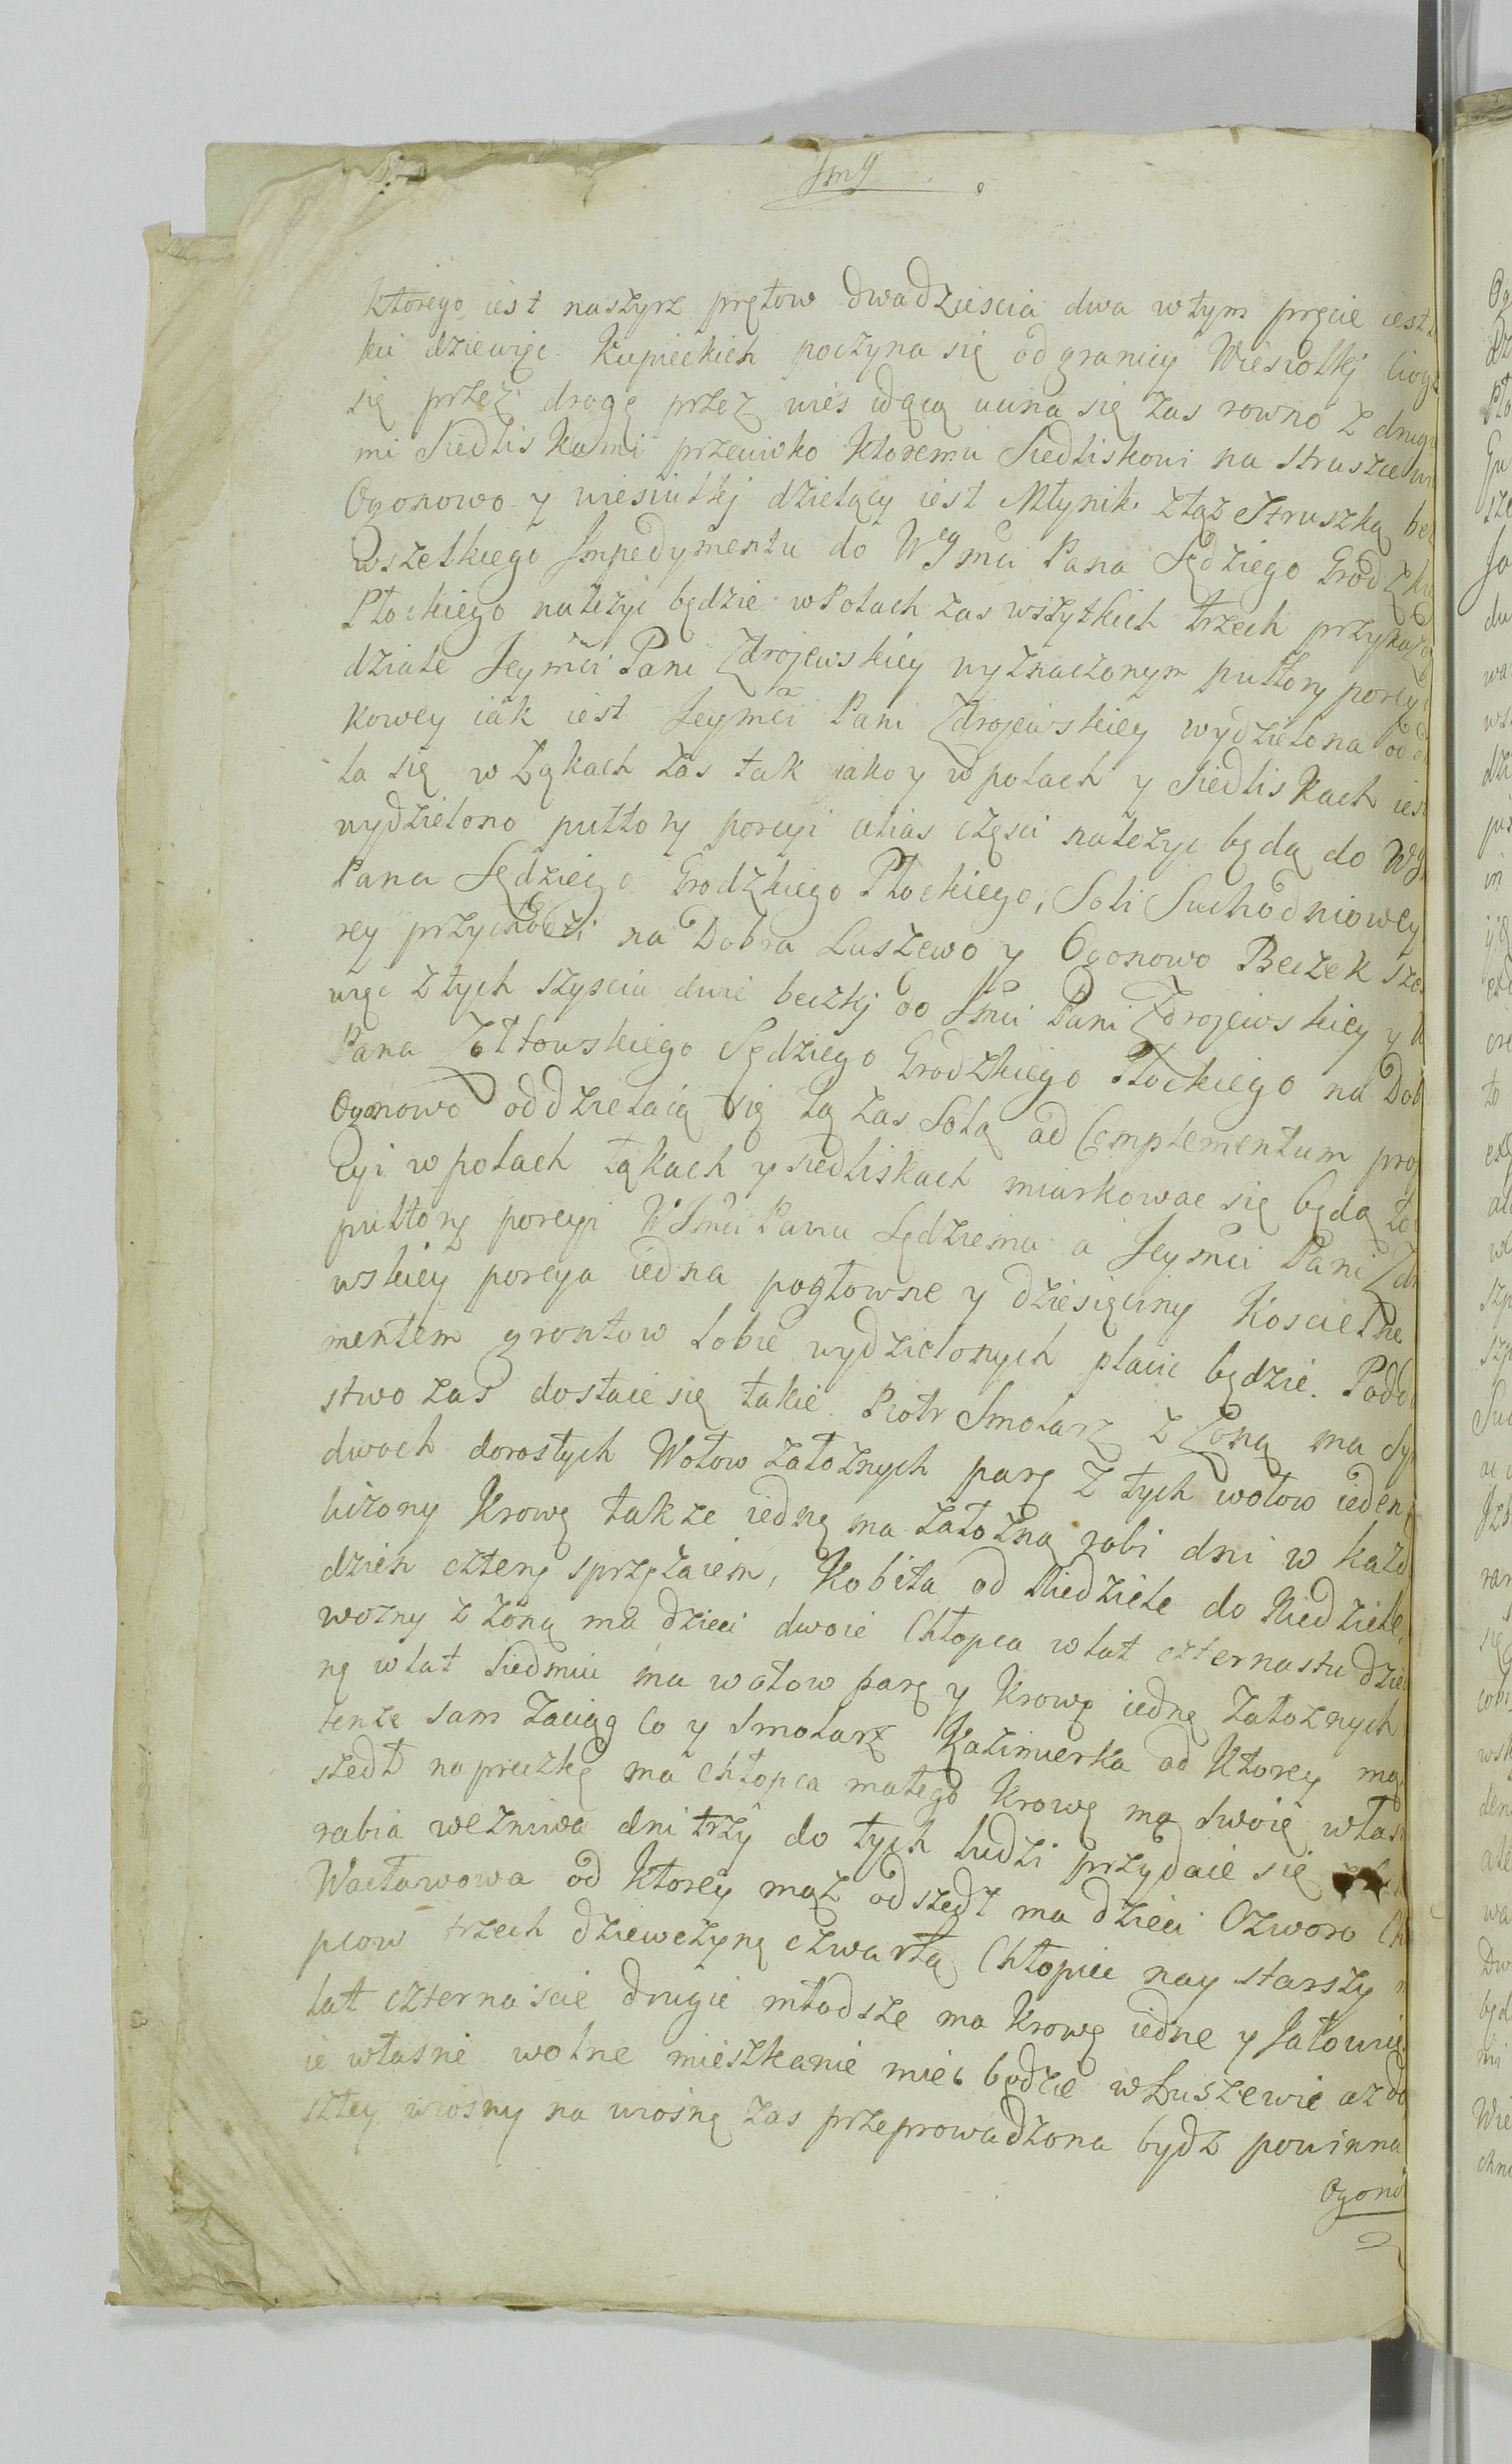 Ktorego iest naszyrz prętow dwadziescia dwa wtym pręcie iest
kci dziewięc Kupieckich poczyna się od granicy Wiesiołkj ciog
się przez drogę przez wies idącą ucina się zas rowno z drug
mi Siedliskami przeciwko Ktoremu Siedliskowi na struszce
Ogonowo y wiesiułkj dzielący iest Młynik ztąż Struszką be
wszelkiego Impedymentu do WJmci Pana Sędziego Grodzki
Płockiego należyc będzie wPolach zas wszytkich trzech przykaz
dziale Jeymci Pani Zdrojewskiey wyznaczonym pułtory porcyi
kowey iak iest Jeymci Pani Zdrojewskiey wydzielona od
la się w Łąkach zas tak jako y w polach y Siedliskach ies
wydzielono pułtory porcyi alias częsci należyc będą do WJ
Pana Sędziego Grodzkiego Płockiego, Soli Suchodniowey
rey przychodzi na Dobra Luszewo y Ogonowo Beczek sze
więc ztych szysciu dwie beczkj do Jmci Pani Zdrojewskiey y
Pana Zołtowskiego Sędziego Grodzkiego Płockiego na Dob
Ogonowo oddzielaią się tą zas Solą ad Complementum pro
cyi w polach łąkach y siedliskach miarkowac się będą
pułtory porcyi WJmci Panu Sędziemu a Jeymci Pani Zdr
wskiey porcya iedna pogłowne y dziesięciny Koscielne
mentem grontow Sobie wydzielonych płacic będzie. Podd
stwo zas dostaie się takie. Piotr Smolarz z Zoną ma Sy
dwoch dorosłych Wołow załoznych parę z tych wołow ieden
liżony Krowę także iednę ma załozną robi dni w kazd
dzien cztery sprzężaiem, Kobita od Niedziele do Niedziele,
wozny z żoną ma dzieci dwoie Chłopca wlat czternastu dzie
nę wlat Siedmiu ma wołow parę y Krowę iednę załoznych
tenze sam zaciąg co y Smolarz Kazimierka od Ktorey mą
szedł napreczkę ma chłopca małego Krowę ma Swoię włas
rabia wezniwa dni trzy do tych ludzi przydaie się
Wacławowa od Ktorey mąż odszedł ma dzieci Czworo Ch
pcow trzech dziewczynę czwartą Chłopiec naystarszy
lat czternascie drugie młodsze ma Krowę iednę y Jałowic
ie własnie wolne mieszkanie miec będzie wLuszewie az do
szłey wiosny na wiosnę zas przeprowadzona bydz powinna
Ogono